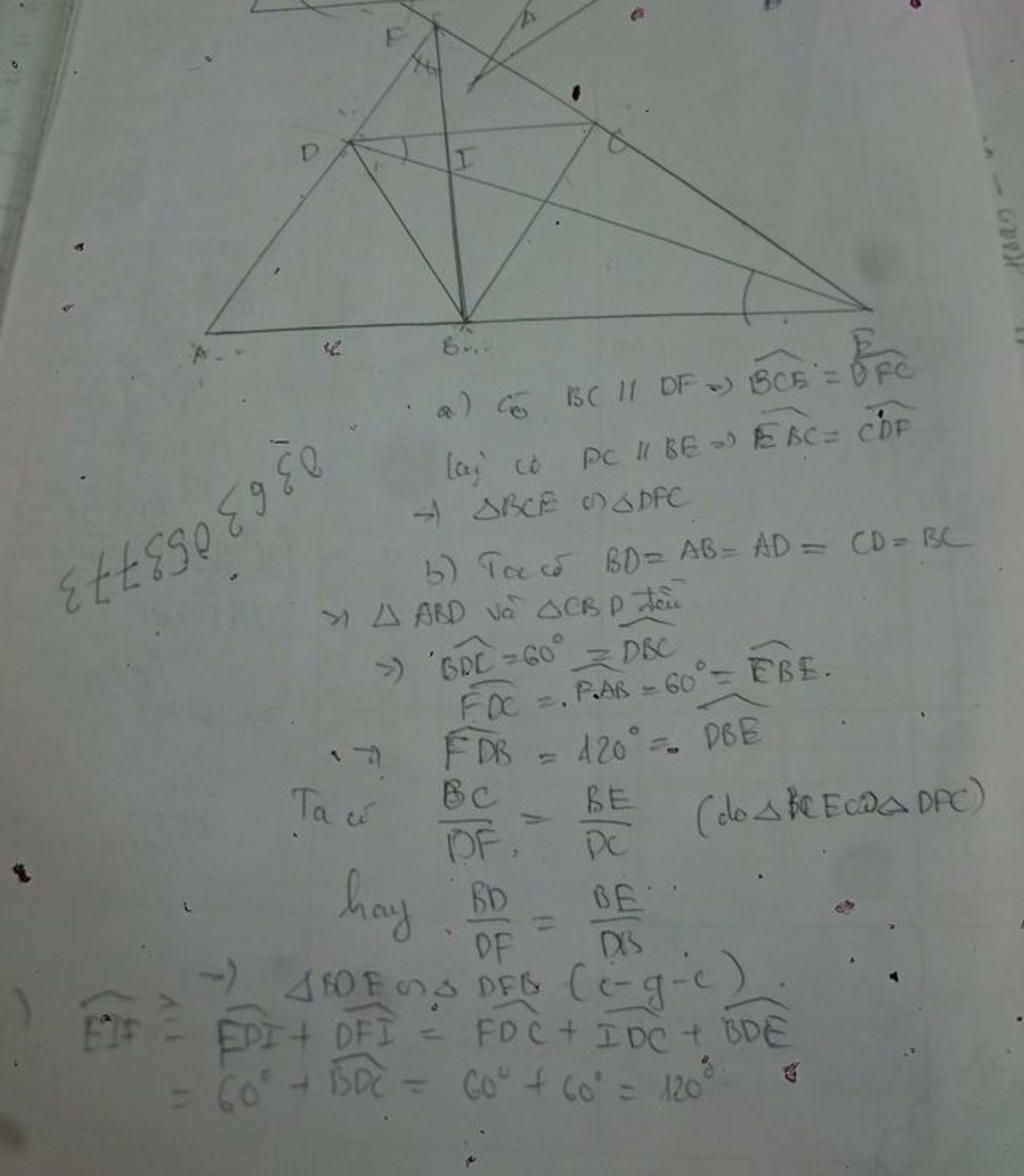 A
F
D
C
I
A
B
E
a) Có BC // DF => BCE = DFC
lại có DC // BE => EBC = CDF
-> △BCE ∽ △DFC
b) Ta có BD = AB = AD = CD = BC
=> △ ABD và △CBD đều
=> BDC = 60° = DBC
FDC = DAB = 60° = EBE.
=> FDB = 120° = DBE
Ta có BC/DF = BE/DC (do △BCE ∽ △ DFC)
hay BD/DF = BE/DB
-> △BDE ∽ △ DFB (c-g-c)
) EIF = FDI + DFI = FDC + IDC + BDE
= 60° + BDC = 60° + 60° = 120°